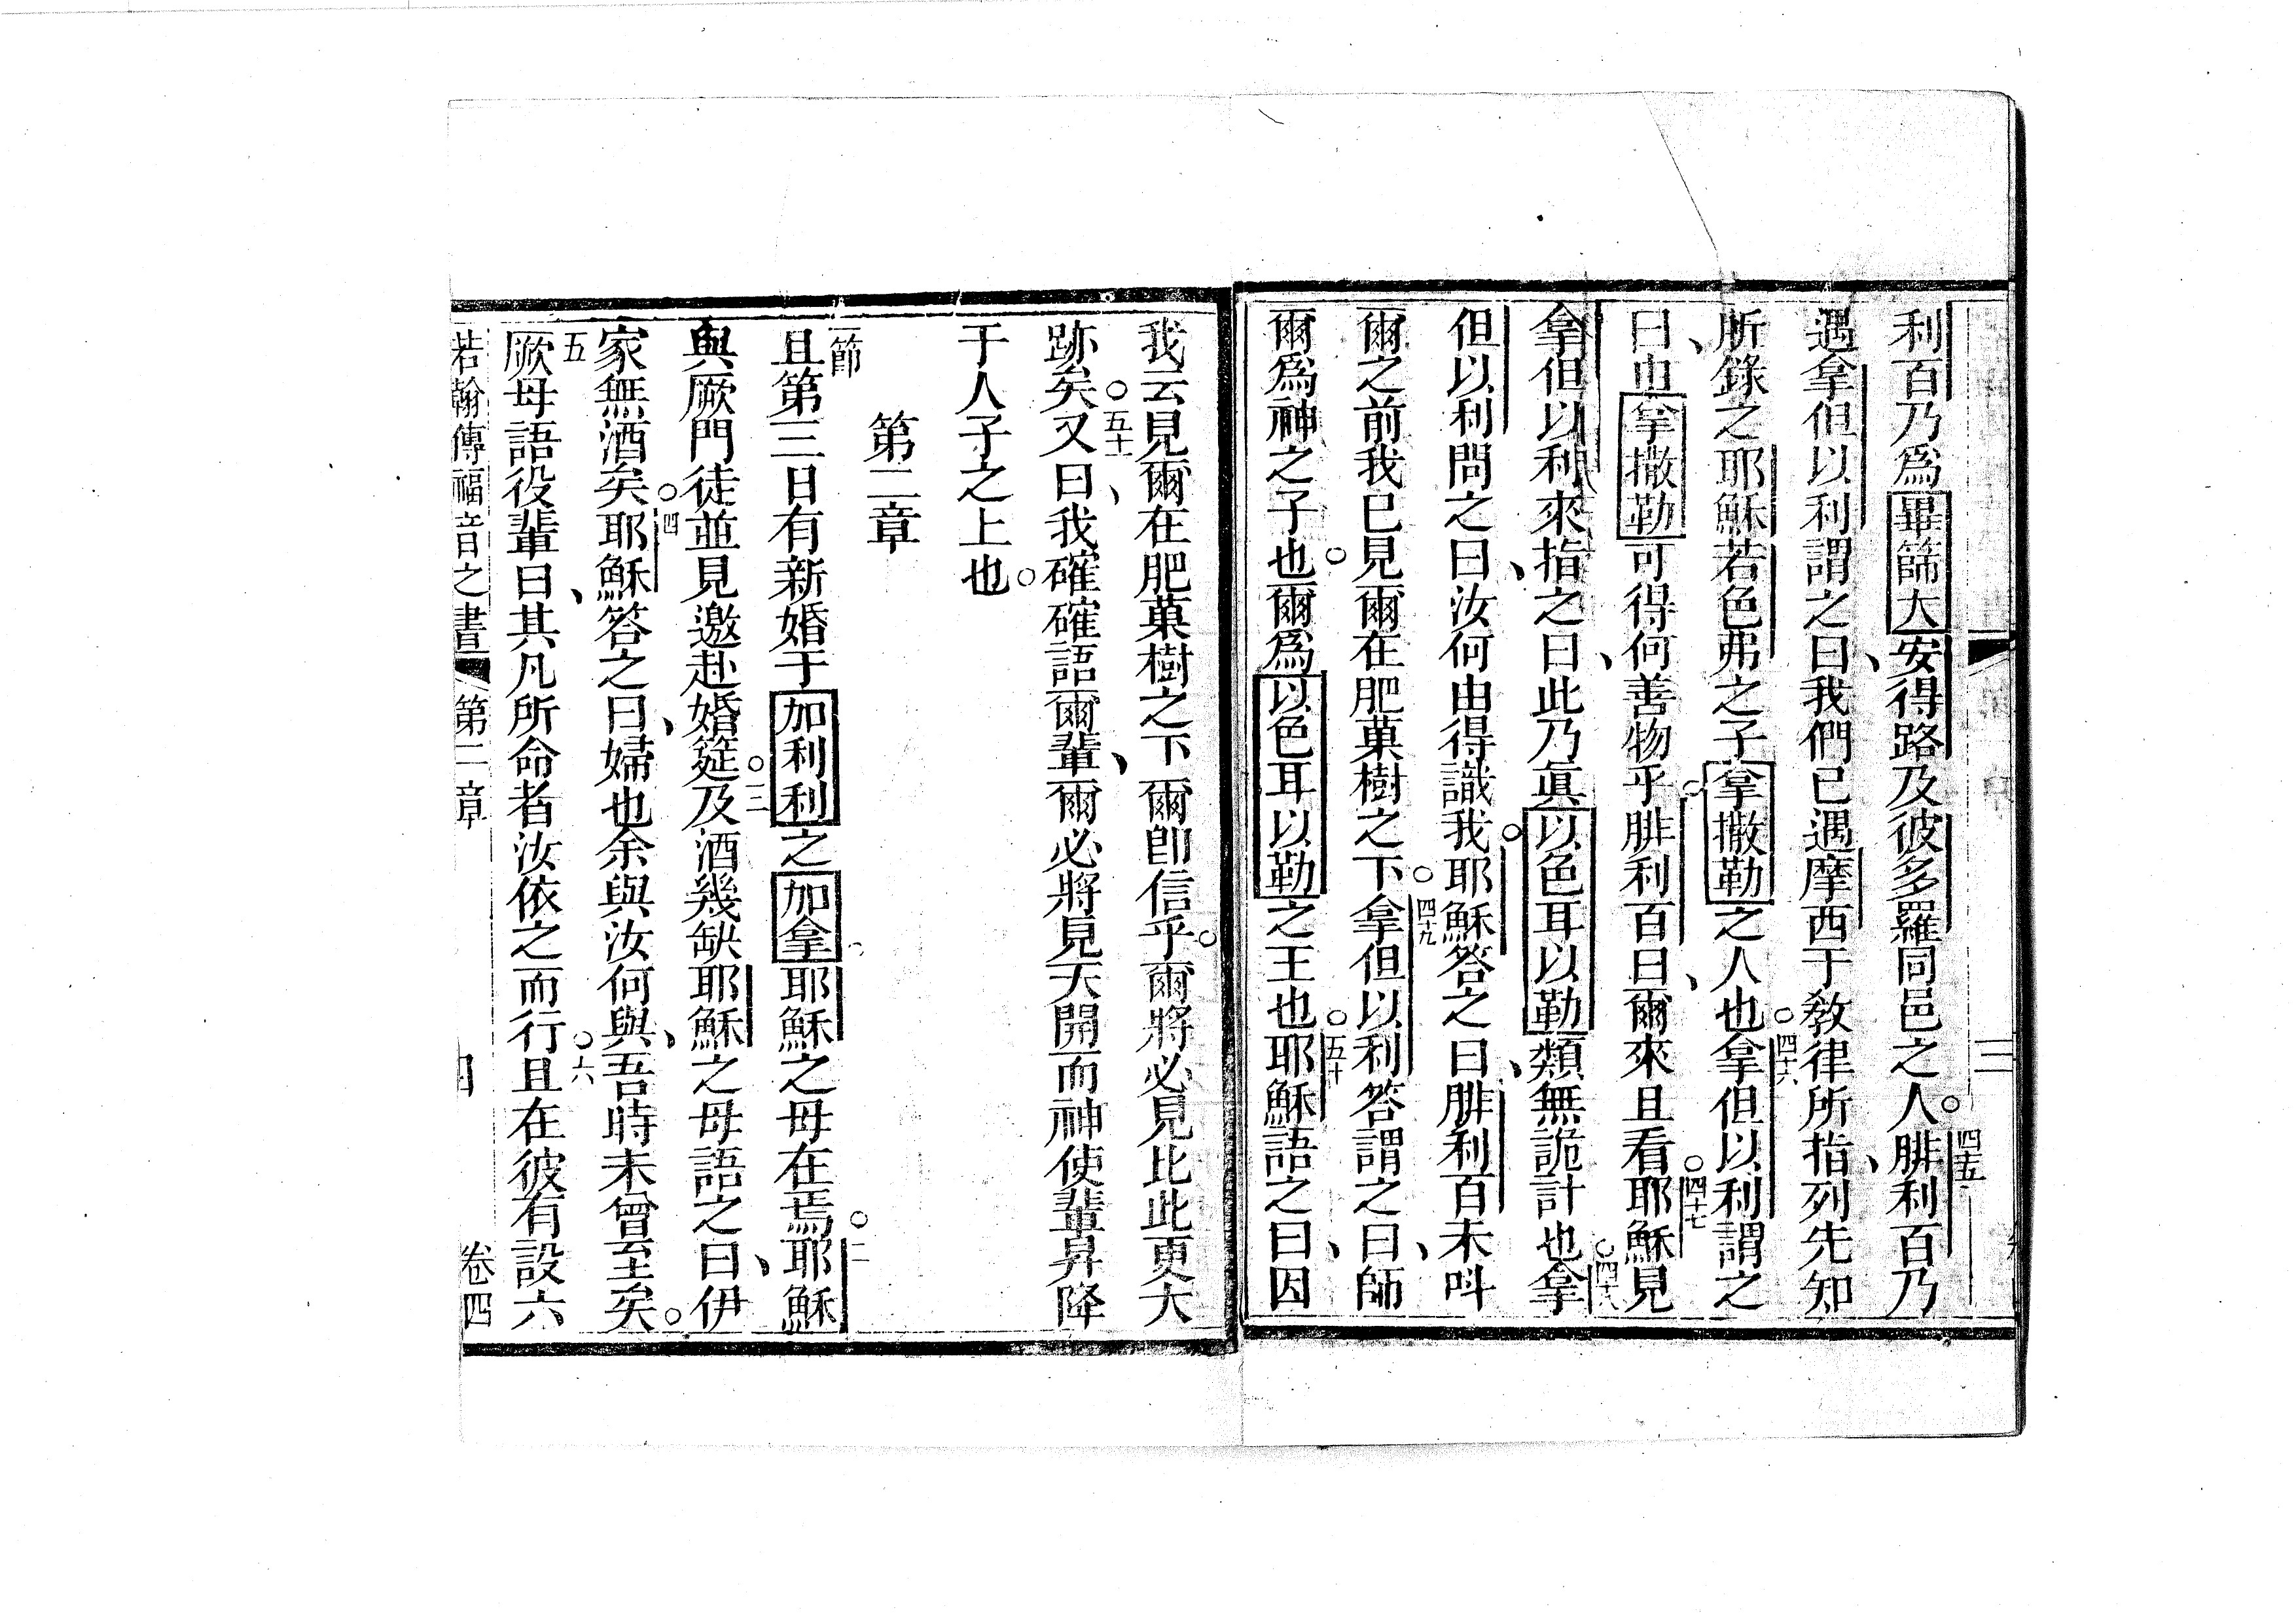 利百乃爲畢篩大安得路及彼多羅同邑之人。四五腓利百乃
遇拿但以利謂之曰、我們已遇摩西于教律所指、列先知
所錄之耶穌若色弗之子拿撒勒之人也。四十六拿但以利謂之
曰、由拿撒勒可得何善物乎。腓利百曰、爾來且看。四十七耶穌見
拿但以利來指之曰、此乃眞以色耳以勒類無詭計也。四十八拿
但以利問之曰、汝何由得識我。耶穌答之曰、腓利百未呌
爾之前我已見爾在肥菓樹之下。四十九拿但以利答謂之曰、師
爾爲神之子也。爾爲以色耳以勒之王也。五十耶穌語之曰、因
三
我云見爾在肥菓樹之下爾卽信乎。爾將必見比此更大
跡矣。五十一又曰、我確確語爾輩、爾必將見天開而神使輩昇降
于人子之上也。
第二章
一節且第三日有新婚于加利利之加拿、耶穌之母在焉。二耶穌
與厥門徒並見邀赴婚筵。三及酒幾缺耶穌之母語之曰、伊
家無酒矣。四耶穌答之曰、婦也余與汝何與、吾時未曾至矣。
五厥母語役輩曰、其凡所命者汝依之而行。六且在彼有設六
若翰傳福音之書 第二章 四 卷四